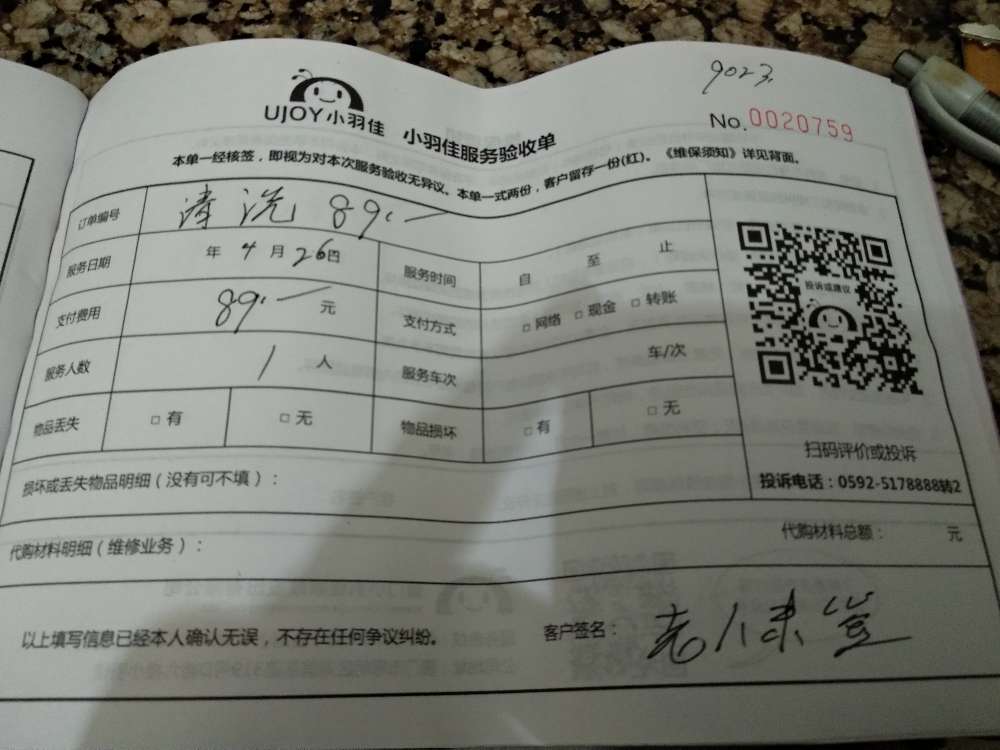 9023
UJOY小羽佳 小羽佳服务验收单
No.0020759
本单一经核签，即视为对本次服务验收无异议。本单一式两份，客户留存一份(红)。《维保须知》详见背面。
订单编号 清洗 89.一
服务日期 年 4 月 26日 服务时间 自 至 止
支付费用 89.一 元 支付方式 □ 网络 □ 现金 □ 转账
服务人数 1 人 服务车次 车/次
物品丢失 □ 有 □ 无 物品损坏 □ 有 □ 无
投诉或建议
扫码评价或投诉
投诉电话：0592-5178888转2
损坏或丢失物品明细（没有可不填）：
代购材料明细（维修业务）： 代购材料总额： 元
以上填写信息已经本人确认无误，不存在任何争议纠纷。 客户签名：